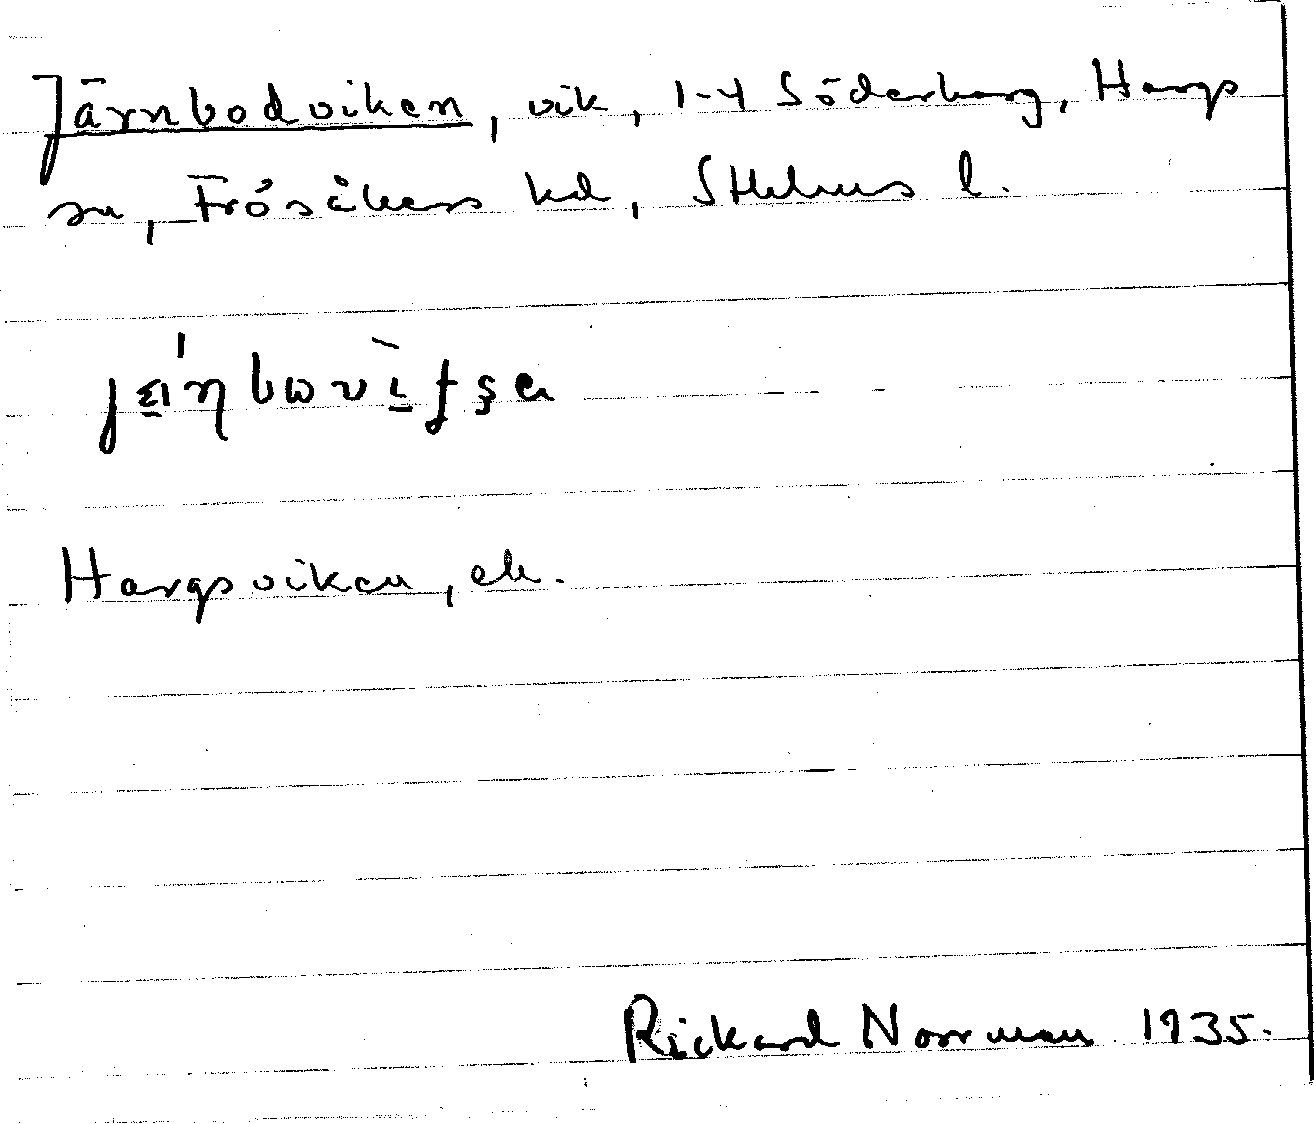 Järnbodviken, vik, 1-4 Söderberg, Hargs
sn, Frösåkers hd, Sthlms l.
Hargsviken, ek.
Rickard Norrman 1935.